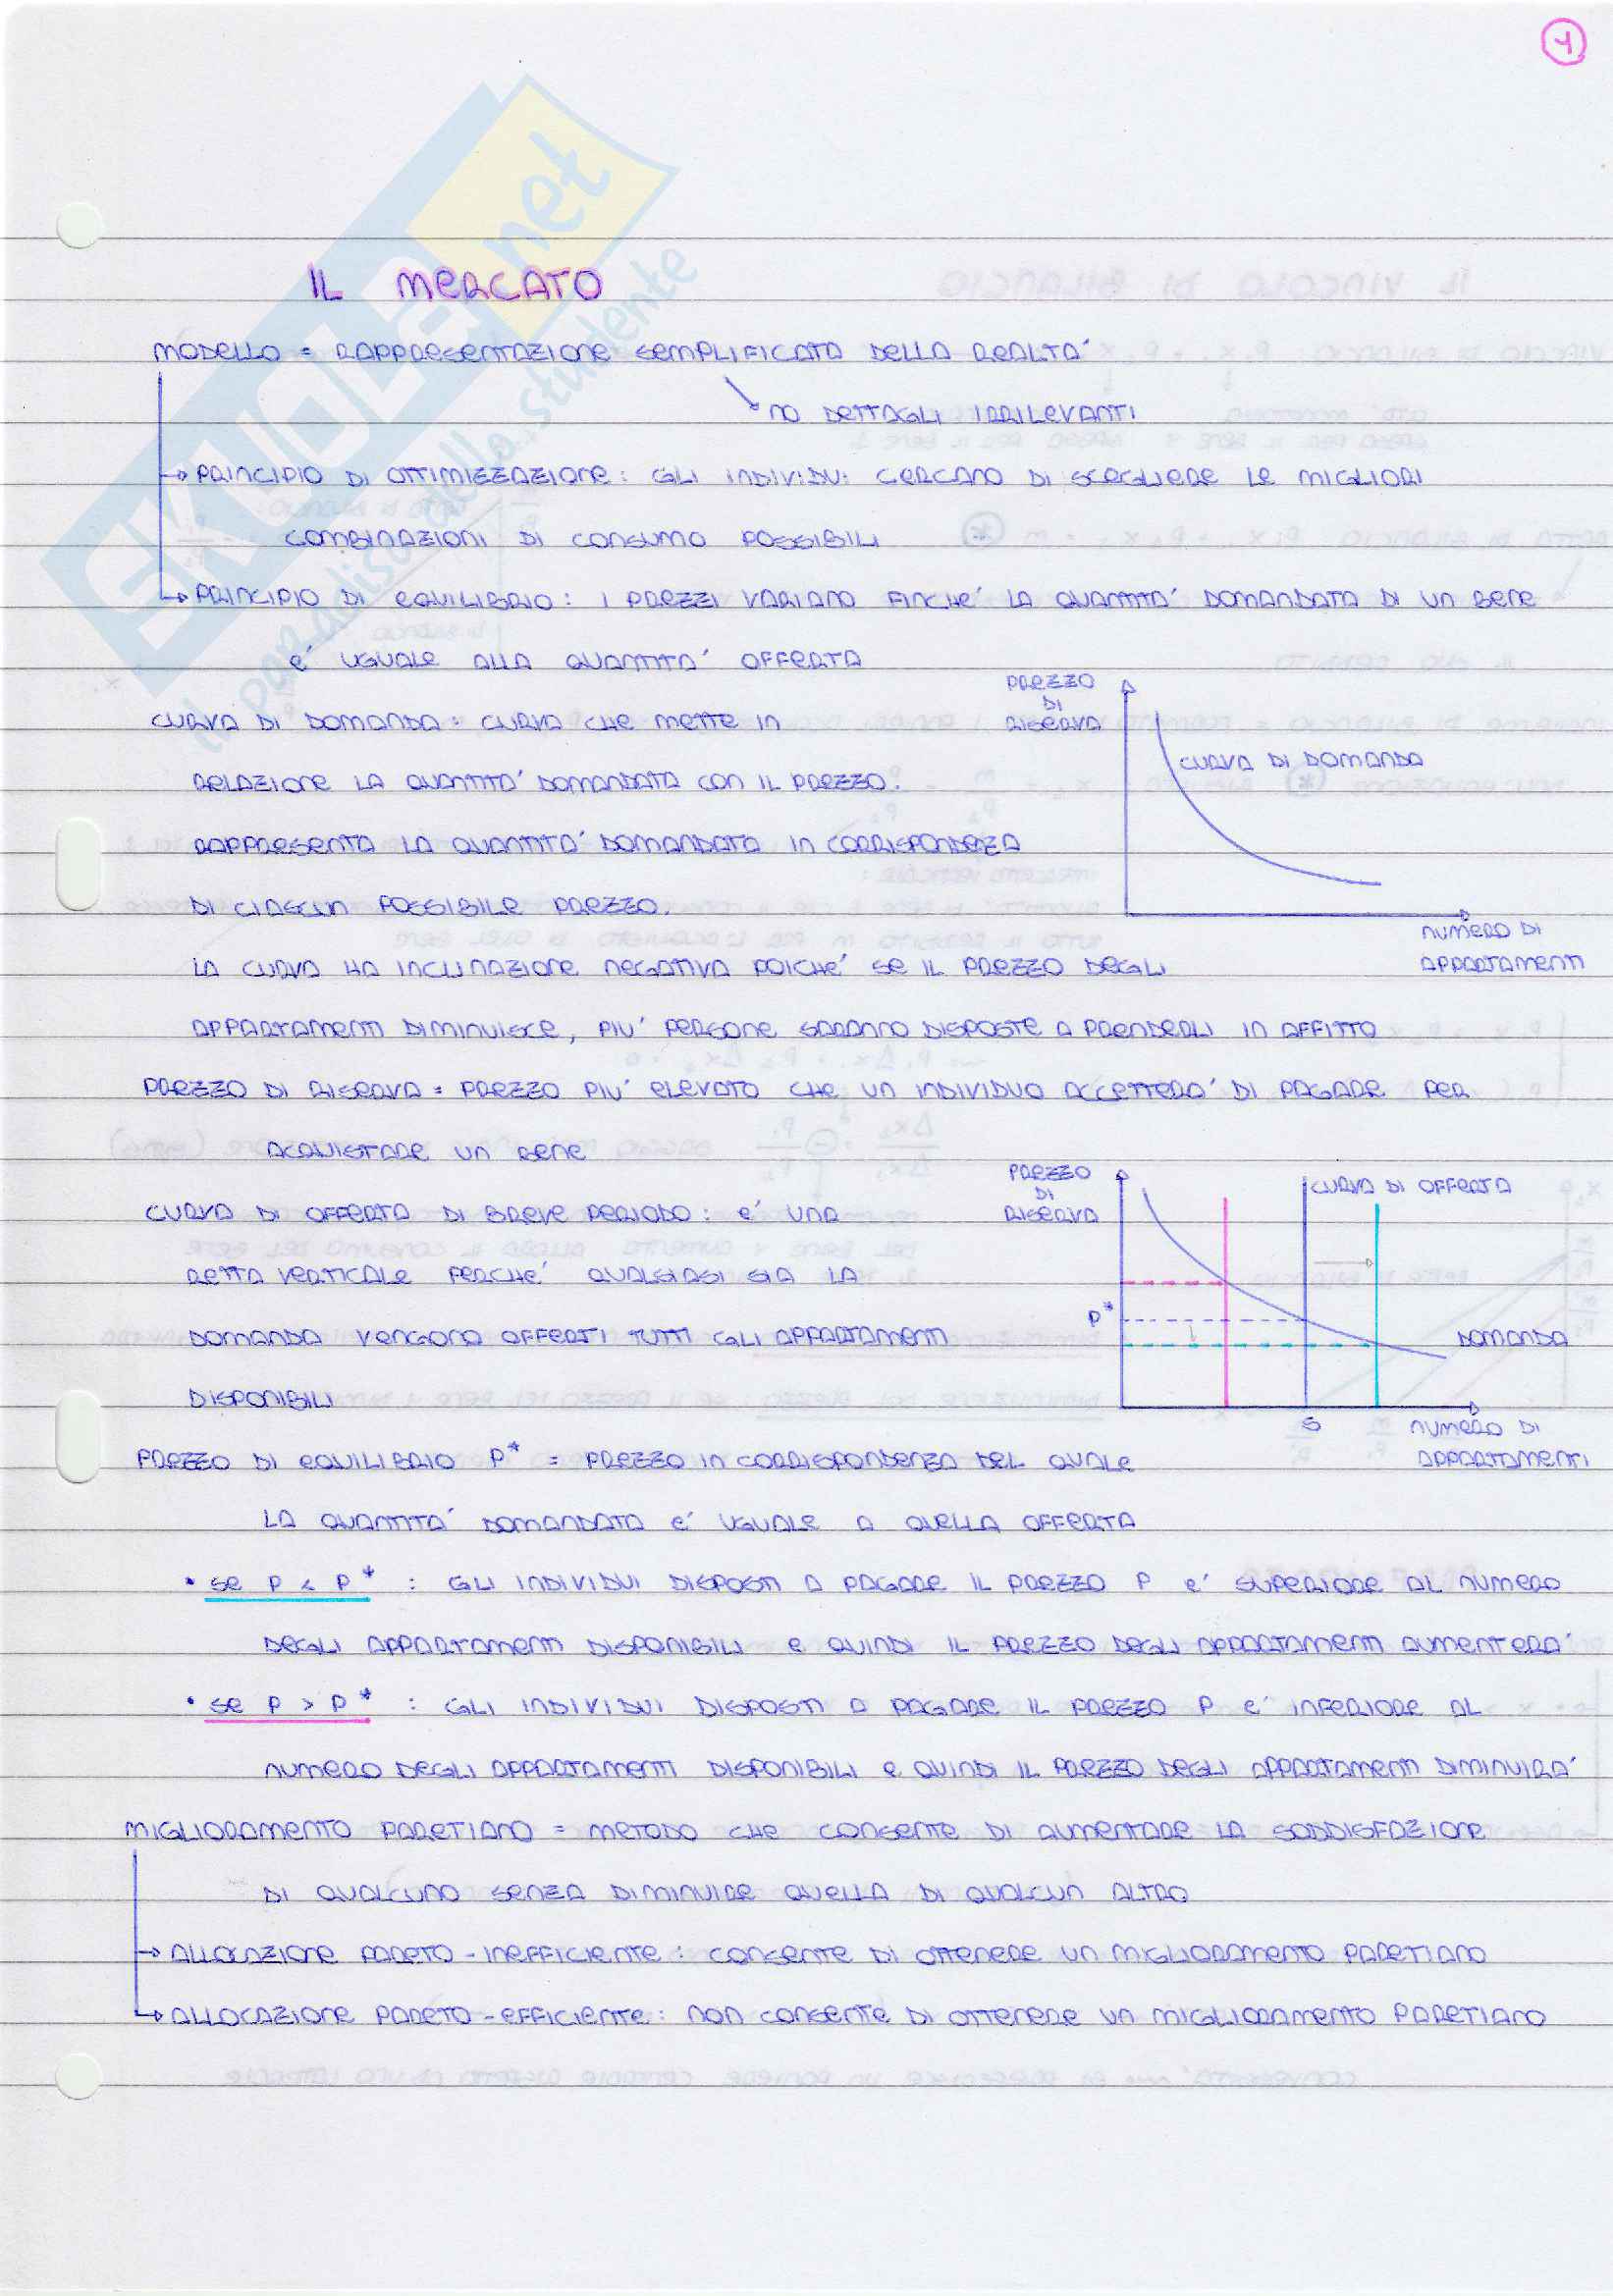 1
IL MERCATO
MODELLO = RAPPRESENTAZIONE SEMPLIFICATA DELLA REALTA'
NO DETTAGLI IRRILEVANTI
→ PRINCIPIO DI OTTIMIZZAZIONE: GLI INDIVIDUI CERCANO DI SCEGLIERE LE MIGLIORI
COMBINAZIONI DI CONSUMO POSSIBILI
→ PRINCIPIO DI EQUILIBRIO: I PREZZI VARIANO FINCHE' LA QUANTITA' DOMANDATA DI UN BENE
E' UGUALE ALLA QUANTITA' OFFERTA
CURVA DI DOMANDA: CURVA CHE METTE IN
RELAZIONE LA QUANTITA' DOMANDATA CON IL PREZZO.
RAPPRESENTA LA QUANTITA' DOMANDATA IN CORRISPONDENZA
DI CIASCUN POSSIBILE PREZZO.
PREZZO
DI
RISERVA
CURVA DI DOMANDA
NUMERO DI
APPARTAMENTI
LA CURVA HA INCLINAZIONE NEGATIVA POICHE' SE IL PREZZO DEGLI
APPARTAMENTI DIMINUISCE, PIU' PERSONE SARANNO DISPOSTE A PRENDERLI IN AFFITTO
PREZZO DI RISERVA = PREZZO PIU' ELEVATO CHE UN INDIVIDUO ACCETTERA' DI PAGARE PER
ACQUISTARE UN BENE
CURVA DI OFFERTA DI BREVE PERIODO: E' UNA
RETTA VERTICALE PERCHE' QUALSIASI SIA LA
DOMANDA VENGONO OFFERTI TUTTI GLI APPARTAMENTI
DISPONIBILI
PREZZO
DI
RISERVA
CURVA DI OFFERTA
P*
DOMANDA
S
NUMERO DI
APPARTAMENTI
PREZZO DI EQUILIBRIO P* = PREZZO IN CORRISPONDENZA DEL QUALE
LA QUANTITA' DOMANDATA E' UGUALE A QUELLA OFFERTA
• SE P < P* : GLI INDIVIDUI DISPOSTI A PAGARE IL PREZZO P E' SUPERIORE AL NUMERO
DEGLI APPARTAMENTI DISPONIBILI E QUINDI IL PREZZO DEGLI APPARTAMENTI AUMENTERA'
• SE P > P* : GLI INDIVIDUI DISPOSTI A PAGARE IL PREZZO P E' INFERIORE AL
NUMERO DEGLI APPARTAMENTI DISPONIBILI E QUINDI IL PREZZO DEGLI APPARTAMENTI DIMINUIRA'
MIGLIORAMENTO PARETIANO = METODO CHE CONSENTE DI AUMENTARE LA SODDISFAZIONE
DI QUALCUNO SENZA DIMINUIRE QUELLA DI QUALCUN ALTRO
→ ALLOCAZIONE PARETO-INEFFICIENTE: CONSENTE DI OTTENERE UN MIGLIORAMENTO PARETIANO
→ ALLOCAZIONE PARETO-EFFICIENTE: NON CONSENTE DI OTTENERE UN MIGLIORAMENTO PARETIANO
SKUOLA.net
il paradiso dello studente